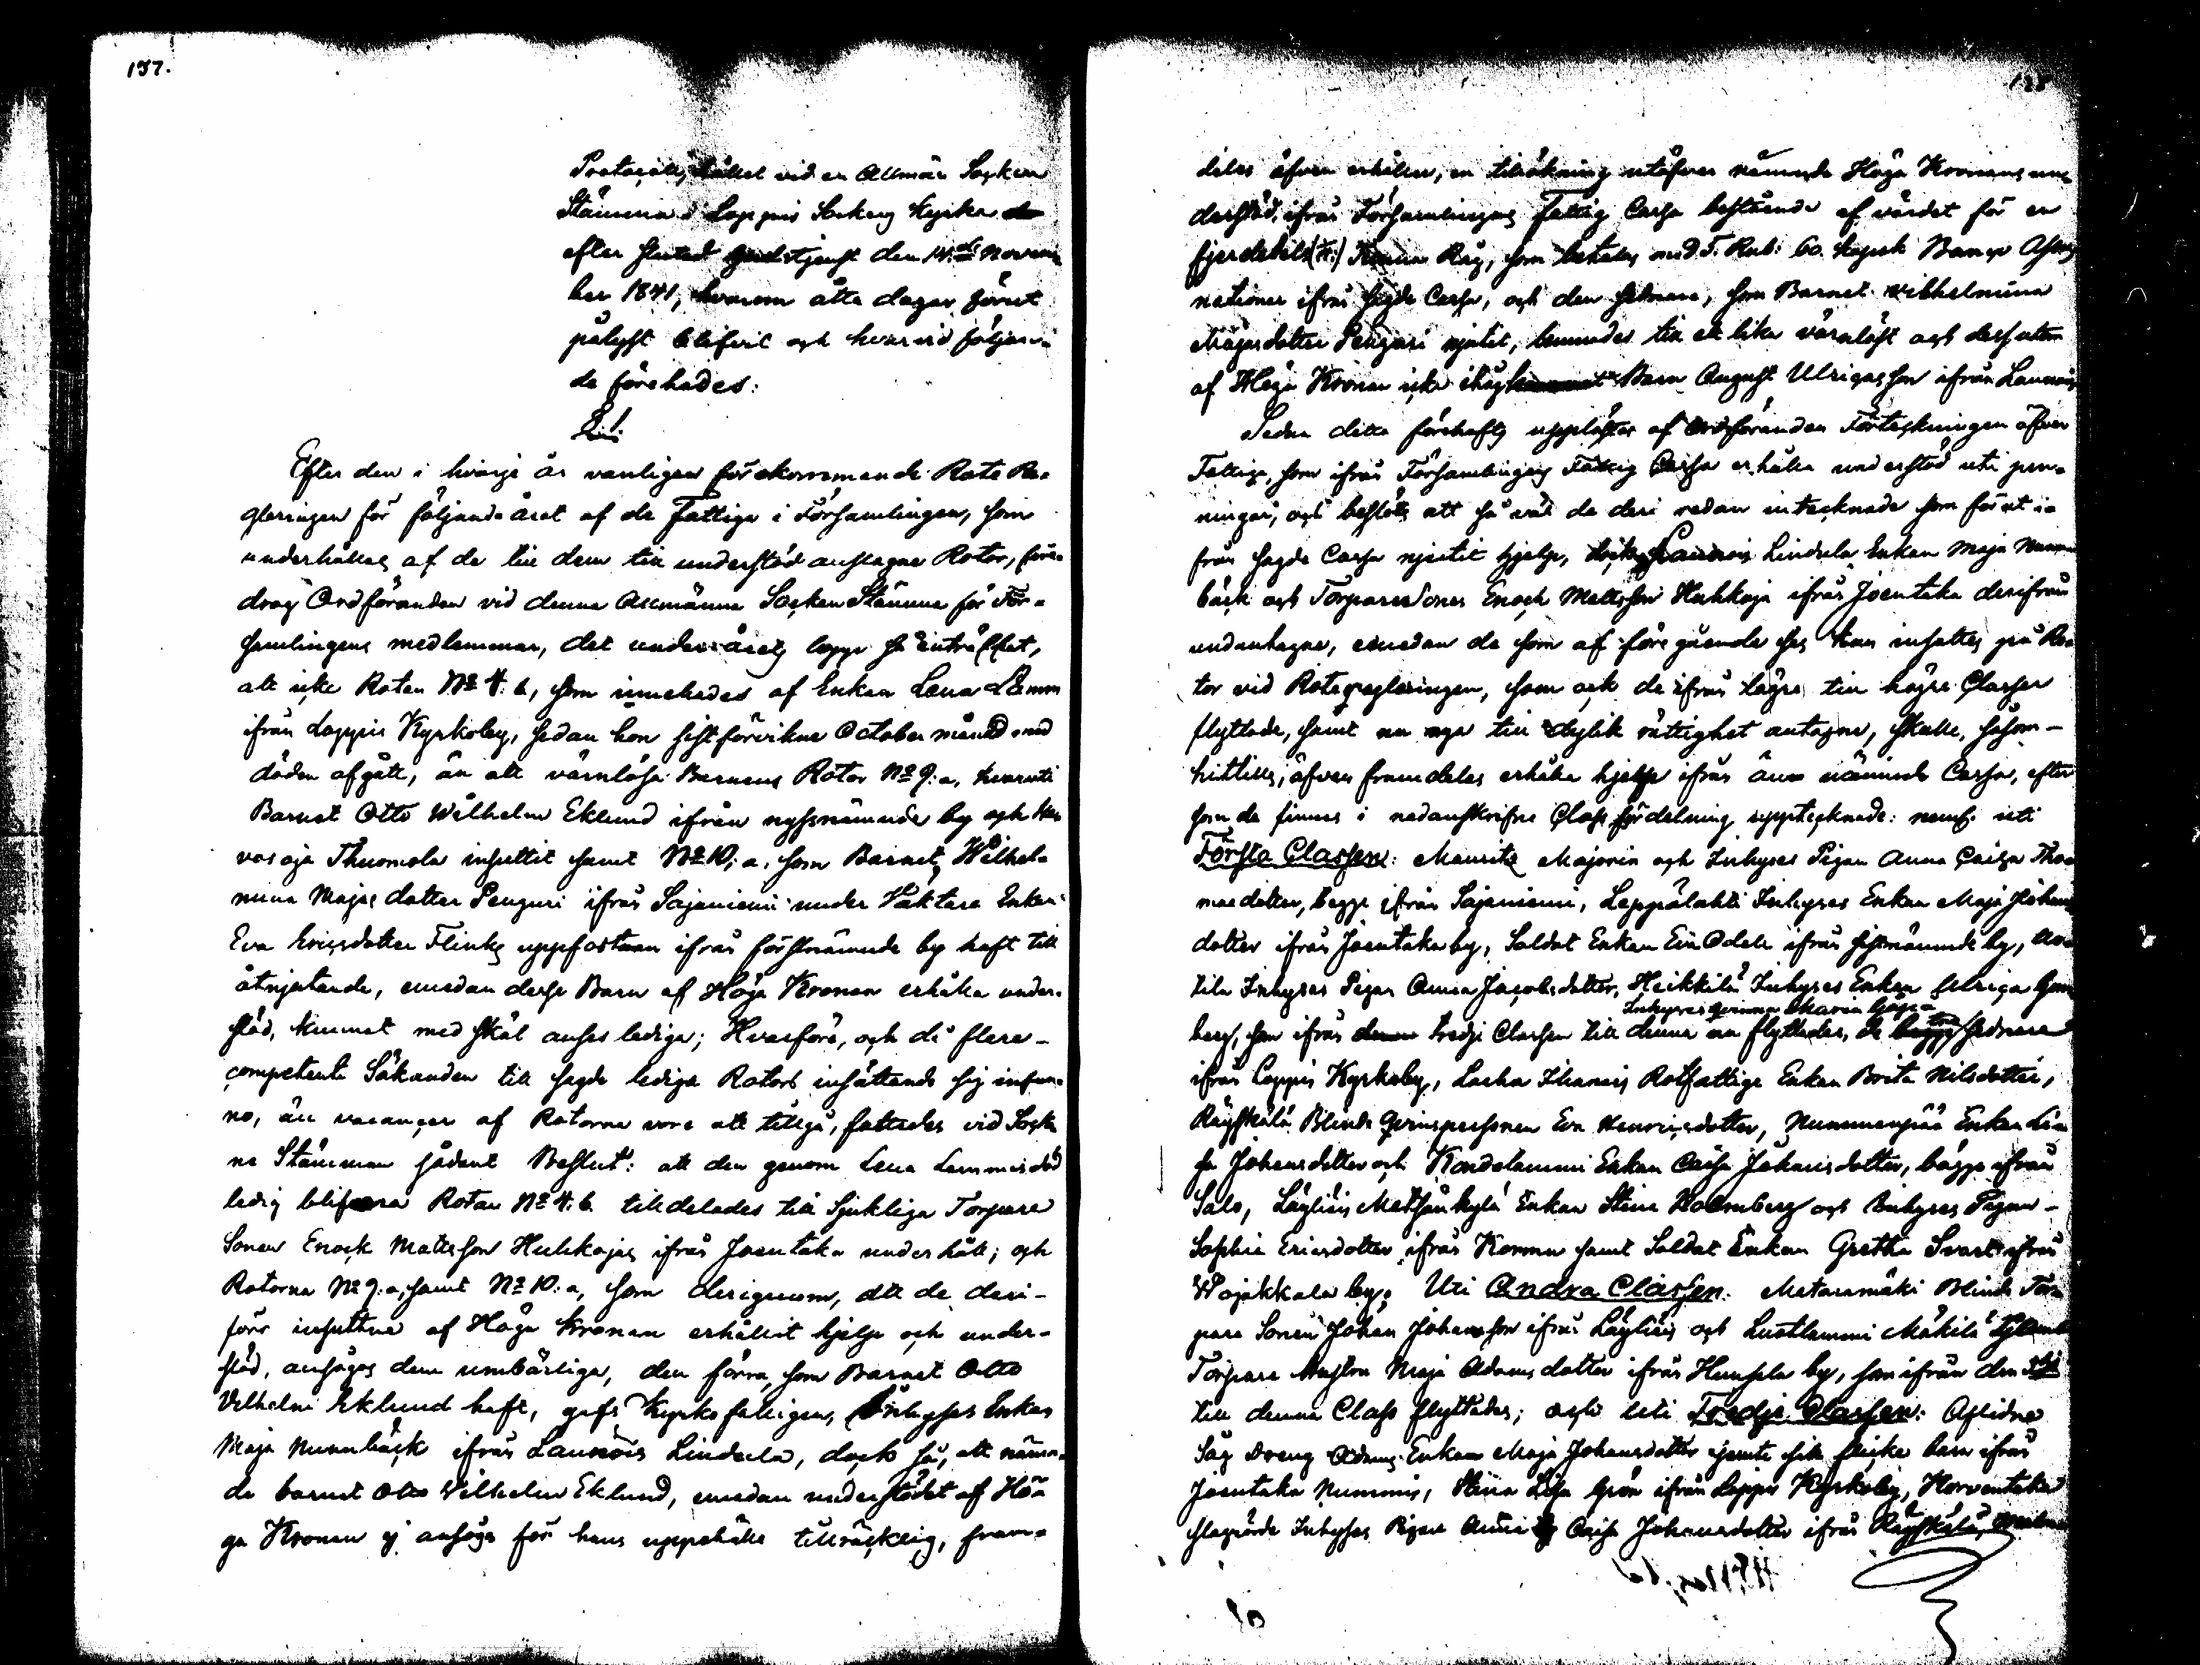 157.
Protocoll, hållet vid en Allmän Socken
Stämma i Loppis Sockens Kyrka
efter slutad gudstjenst den 14:de Novem-
ber 1841, hvarom åtta dagar förut
pålyst blifvit och hvarvid följan-
de förehades:
§ 1.
Efter den i hvarje år vanligen förekommande Rote Re-
gleringen för följande året af de Fattige i Församlingen, som
underhålles af de till dem till understöd anslagne Rotor, före-
drog Ordföranden vid denna Allmänna Socken Stämma för För-
samlingens medlemmar, det under årets lopp så inträffat,
att icke Roten No 4. b, som innehades af Enkan Lena Lamm
ifrån Loppis Kyrkoby, sedan hon sistförvikne October månad med
döden afgått, än att värnlösa Barnens Rotor No 9: a, hvaruti
Barnet Otto Wilhelm Eklund ifrån nyssnämnde by och
varoja Thuomola insuttit samt No 10: a. som Barnet Wilhel-
mina Majas dotter Penguri ifrån Sajaniemi under Vaktare Enkan
Eva Ericsdotter Flinks uppfostran ifrån förstnämnde by haft till
åtnjutande, emedan desse Barn af Höga Kronan erhålla under-
stöd, kunnat med skäl anses lediga; Hvarföre, och då flere
competente Sökanden till sagde lediga Rotors insättande sig infun-
no, än vacancer af Rotorna vore att tillgå, fattades vid Socke-
ne Stämman sådant Beslut: att den genom Lena Lamms död
ledig blifvna Rotan No 4. b. tilldelades till Sjuklige Torpare
Sonen Enock Mattsson Huhkajas ifrån Joentaka underhåll; och
Rotorna No 9: a, samt No 10: a, som derigenom, att de deri-
före insuttne af Höga Kronan erhållit hjelp och under-
stöd, ansågos dem umbärliga, den förra, som Barnet Otto
Vilhelm Eklund haft, gafs Kyrkofattigen, Inhyses Enkan
Maja Nummbäck ifrån Launois Lindula, dock så, att nämn-
de barnet Otto Wilhelm Eklund, emedan understödet af Hö-
ga Kronan ej ansågs för hans uppehälle tillräcklig, fram-
deles äfven erhåller, en tillökning utöfver nämnde Höga Kronans un-
derstöd, ifrån Församlingens Fattig Cassa bestående af värdet för en
fjerdedels Råg, som betalas med 5. Rub. 60. kopek Banco Assig-
nationer ifrån sagde Cassa, och den sednare, som Barnet Vilhelmina
Majasdotter Penguri njutit, lemnades till ett lika värnlöst och dessutom
af Höga Kronan icke Barn August Ulricasson ifrån Launois
Sedan detta förehafts upplästes af Ordföranden Förteckningen öfver
Fattige, som ifrån Församlingens Fattig Cassa erhålla understöd uti pen-
ningar, och beslöts att så väl de deri redan intecknade som förut i-
från sagde Cassa njutit hjelp, Launois Lindula Enkan Maja Numm-
bäck och Torparesonen Enoch Mattsson Huhkaja ifrån Joentaka derifrån
undantagne, emedan de som af föregående ses kan insattes på Ro-
tor vid Roteregleringen, som ock de ifrån lägre till högre Classer
flyttade, samt nu nya till dylik rättighet antagne, skulle, såsom
hittills, äfven framdeles erhålla hjelp ifrån nämnde Cassa, efter
som de finnes i nedanskrifne Class fördelning upptecknade: nemt. uti
Första Classen: Mauritz Majorin och Inhyses Pigan Anna Caisa Tho-
mae dotter, begge ifrån Sajaniemi, Leppälahti Inhyses Enkan Maja Johans
dotter ifrån Joentaka by, Soldat Enkan Eva Odell ifrån sistnämnde by,
tila Inhyses Pigan Anna Jacobsdotter, Heikkilä Inhyses Enkan Ulrica
Inhyses qvinnan Maria
berg, som ifrån tredje Classen till denna flyttades, de sednare
ifrån Loppis Kyrkoby, Rotfattige Enkan Brita Nilsdotter,
Räyskälä Blinde Qvinspersonen Eva Henricsdotter, Nummenpää Enkan Li-
sa Johansdotter och Kondolammi Enkan Caisa Johansdotter, bägge ifrån
Salo, Läyliäis Metsänkylä Enkan Stina Holmberg och Inhyses Pigan
Sophia Ericsdotter ifrån Kormu samt Soldat Enkan Gretha Svart ifrån
Wojakkala by. Uti Andra Classen: Metasamäki Blinde Tor-
pare Sonen Johan Johansson ifrån Läyliäis och Luotlammi Mäkilä
Torpare Maja Adamsdotter ifrån Hunsala by, som ifrån den 3dje
till denna Class flyttades; och uti Tredje Classen: Aflidne
Såg Dreng Adams Enkan Maja Johansdotter jemte sitt sjuke barn ifrån
Joentaka Nummis, Stina Lisa Grön ifrån Loppis Kyrkoby, Horventaka
Inhyses Pigan Caisa Johansdotter ifrån Räyskälä,